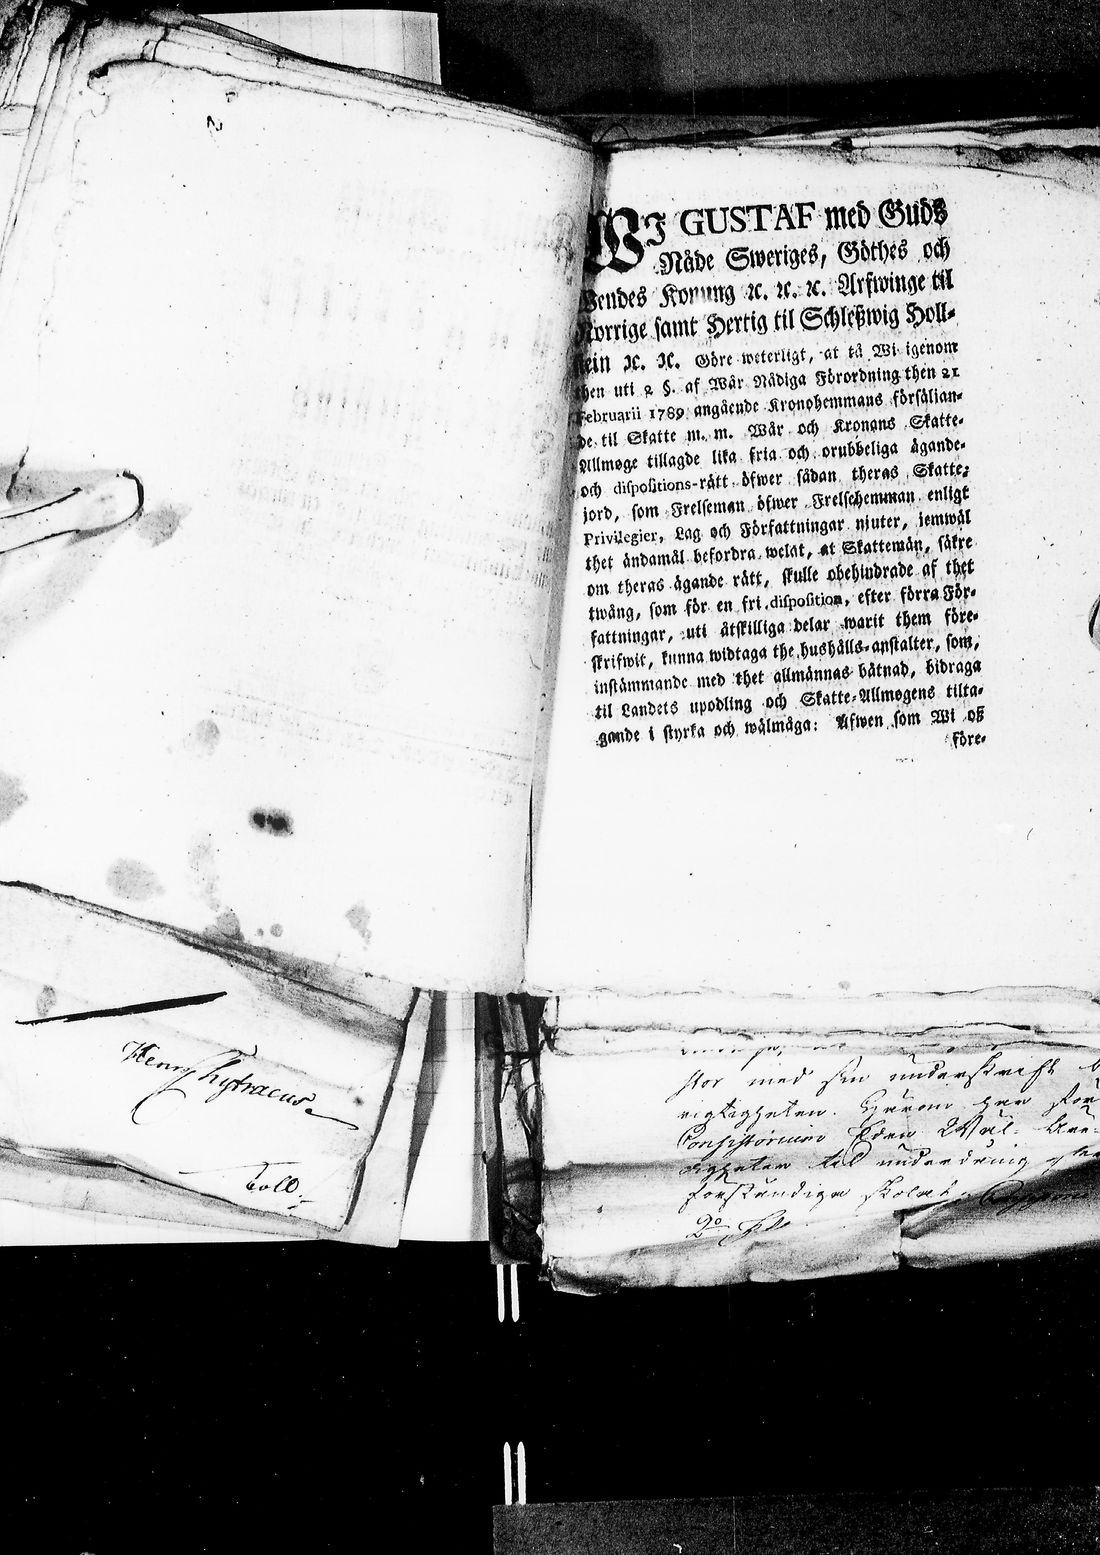 WJ GUSTAF med Guds
Nåde Sweriges, Göthes och
Wendes Konung ꝛc. ꝛc. ꝛc. Arfwinge til
Norrige samt Hertig til Schleßwig Holl-
stein ꝛc. ꝛc. Göre weterligt, at tå Wi igenom
then uti 2 §. af Wår Nådiga Förordning then 21
Februarii 1789 angående Kronohemmans försäljan-
de til Skatte m. m. Wår och Kronans Skatte-
Allmoge tillagde lika fria och orubbeliga ägande-
och dispositions-rätt öfwer sådan theras Skatte-
jord, som Frelseman öfwer Frelsehemman enligt
Privilegier, Lag och Författningar njuter, jemwäl
thet ändamål befordra welat, at Skattemän, säkre
om theras ägande rätt, skulle obehindrade af thet
twång, som för en fri disposition, efter förra För-
fattningar, uti åtskilliga delar warit them före-
skrifwit, kunna widtaga the hushålls-anstalter, som,
instämmande med thet allmännas båtnad, bidraga
til Landets upodling och Skatte-Allmogens tilta-
gande i styrka och wälmåga: Äfwen som Wi oß
före-
Henry Chytraeus
Toll
stor med sin underskrift
rigtigheten. Härom har
Consistorium Eder Wäl-
til underdånig
forständiga skolat
2o